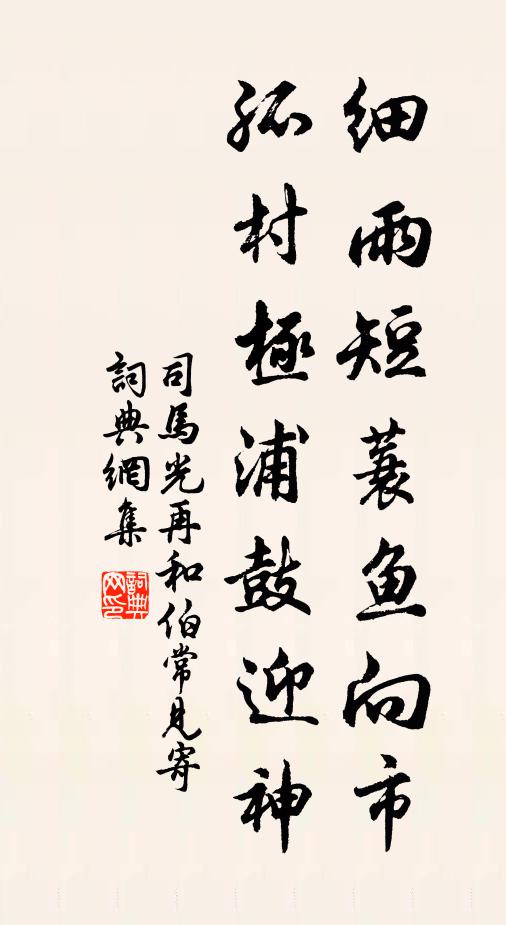 細雨短蓑鱼向市
孤村極浦鼓迎神
司馬光再和伯常見寄
詞典網集
詞典
网印